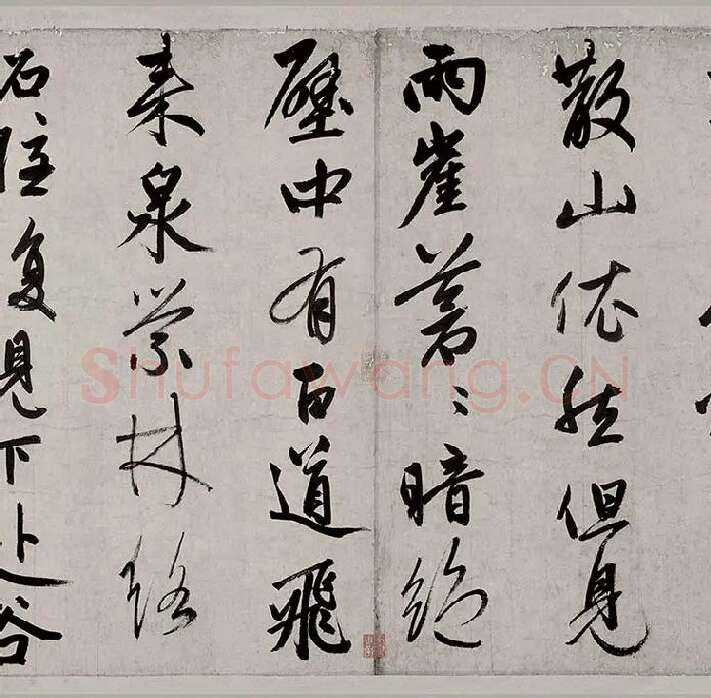 散山依然但見
兩崖蒼〻暗絶
壁中有百道飛
来泉縈林絡
石隱復見下赴谷
Shufawang.CN